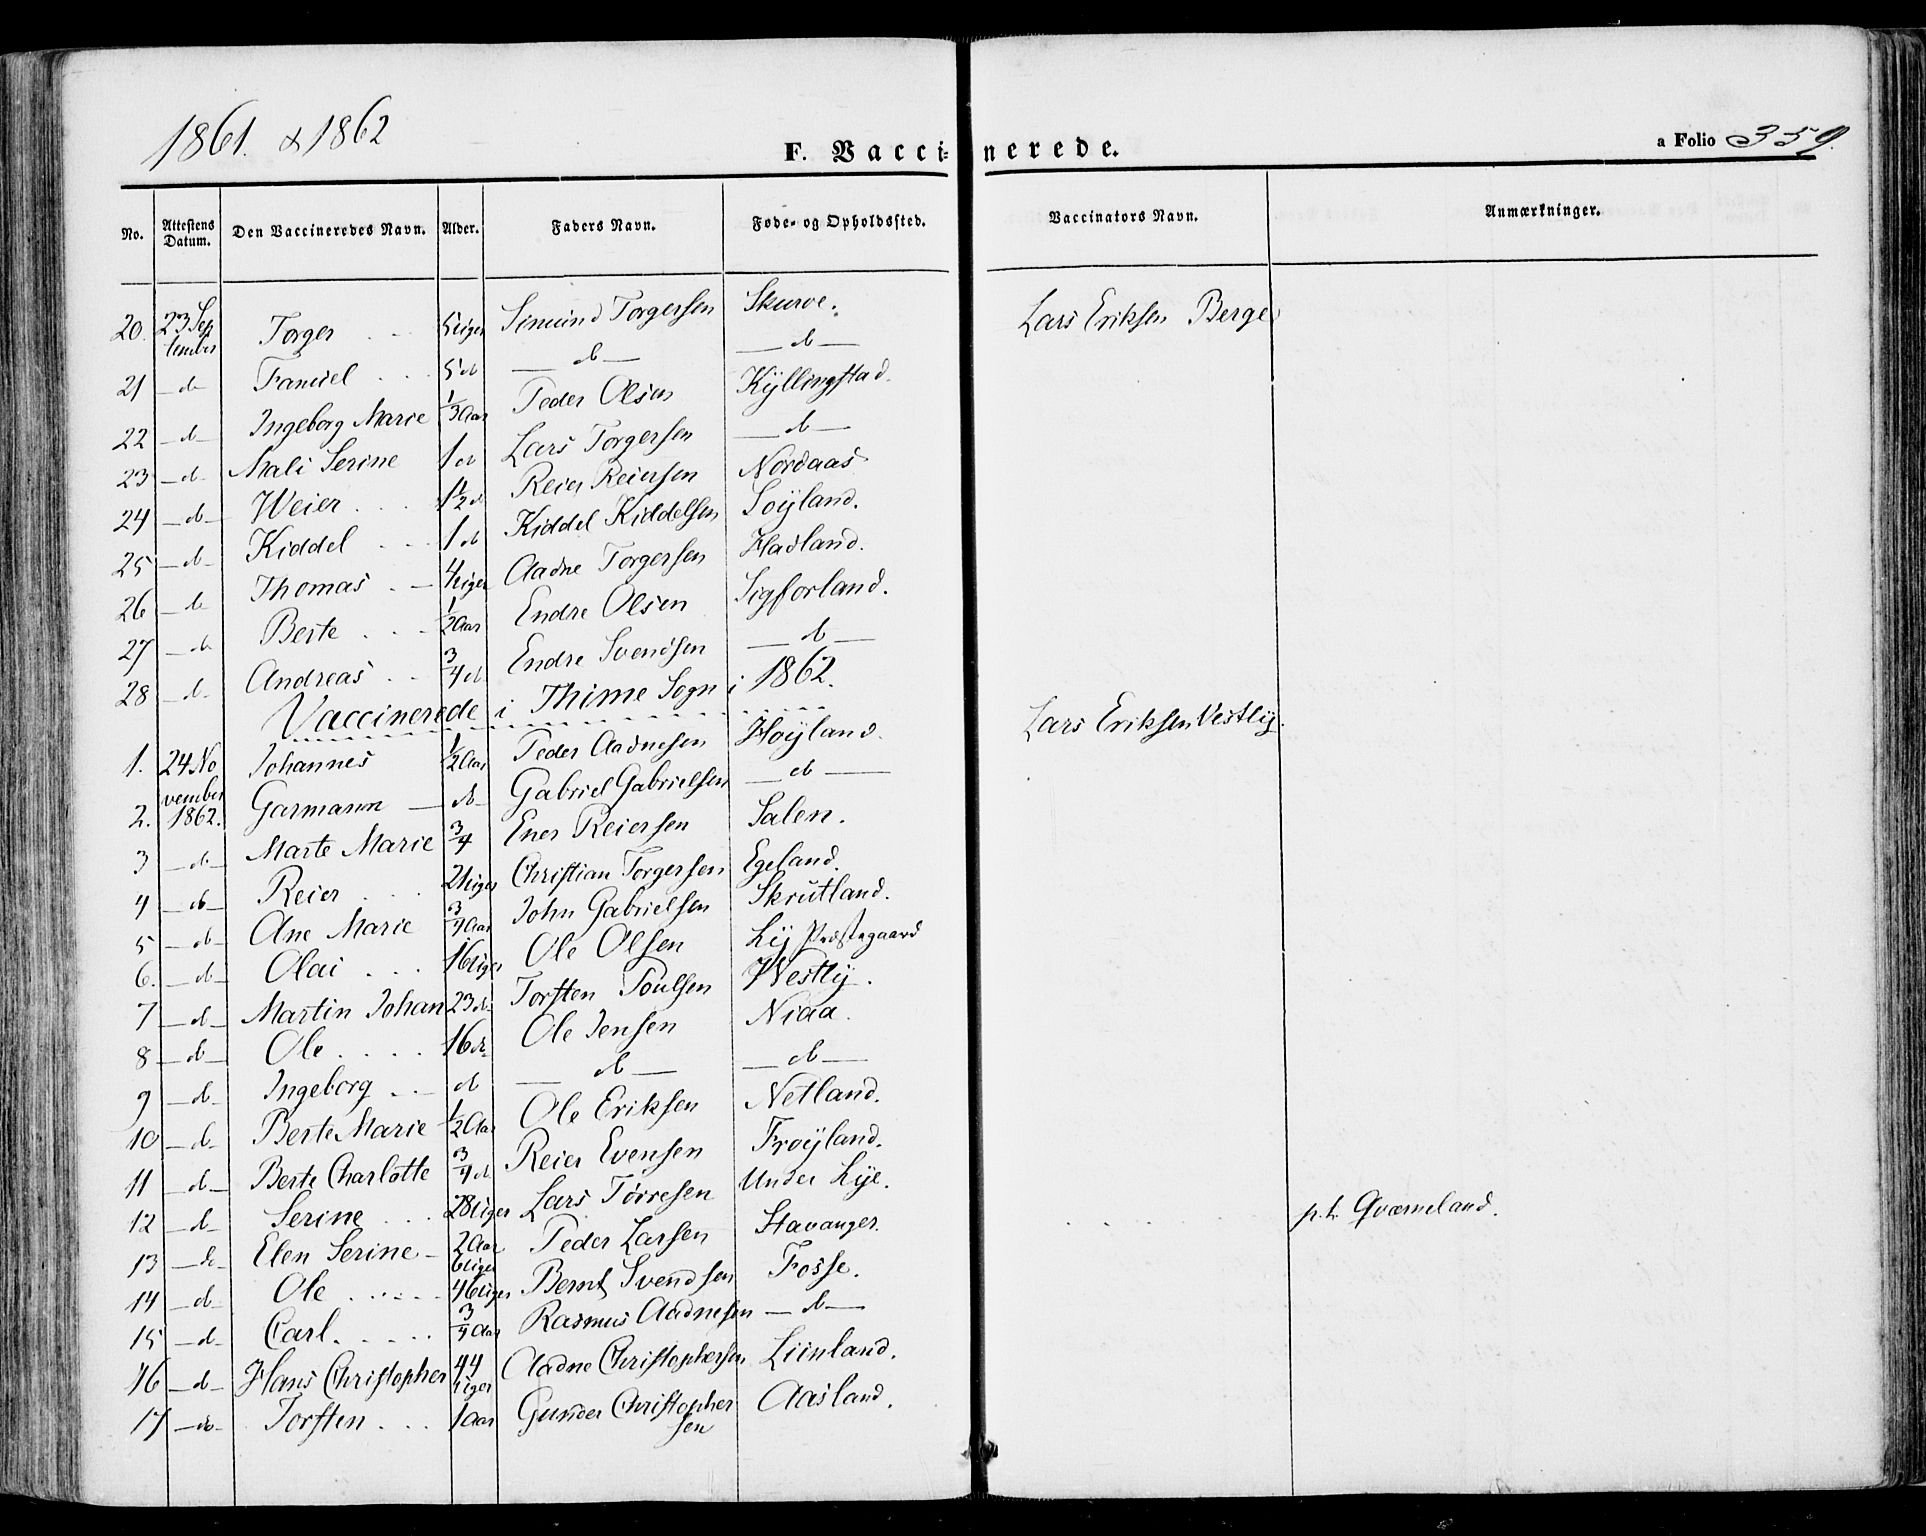 1861. & 1862
F. Vaccinerede.
a Folio 359.
No. | Attestens Datum. | Den Vaccineredes Navn. | Alder. | Faders Navn. | Føde- og Opholdssted. | Vaccinators Navn. | Anmærkninger.
20. | 23 September | Torger | 5 Uger | Simund Torgersen | Skurve. | Lars Eriksen Berge
21 | – d – | Samuel | 5 d | – d – | – d –
22 | – d – | Ingeborg Marie | 1/3 Aar | Peder Olsen | Kÿllingstad.
23 | – d – | Mali Serine | 1 d | Lars Torgersen | – d –
24 | – d – | Weier | 1 1/2 d | Reier Reiersen | Nordaas
25 | – d – | Kiddel | 1 d | Kiddel Kiddelsen | Soÿland.
26 | – d – | Thomas | 4 Uger | Aadne Torgersen | Hadland.
27 | – d – | Berte | 1/2 Aar | Endre Olsen | Sigforland.
28 | – d – | Andreas | 3/4 d | Endre Svendsen | – d –
Vaccinerede i Thime Sogn i 1862.
1. | 24 November 1862. | Johannes | 1/2 Aar | Peder Aadnesen | Høÿland. | Lars Eriksen Vestlÿ.
2. | Garmann | – d – | Gabriel Gabrielsen | – d –
3 | – d – | Marte Marie | 3/4 | Ener Reiersen | Salen.
4 | – d – | Reier | 21 Uger | Christian Torgersen | Egeland.
5 | – d – | Ane Marie | 3/4 Aar | John Gabrielsen | Skrutland.
6. | – d – | Olai | 16 Uger | Ole Olsen | Lÿ Præstegaard
7 | – d – | Martin Johan | 23 d | Torsten Poulsen | Westlÿ.
8 | – d – | Ole | 16 d | Ole Jensen | Niaa.
9 | – d – | Ingeborg | d | – d – | – d –
10 | – d – | Berte Marie | 1/2 Aar | Ole Eriksen | Netland.
11 | – d – | Berte Charlotte | 3/4 d | Reier Evensen | Frøÿland.
12 | – d – | Serine | 28 Uger | Lars Tørresen | Under Lÿe.
13 | – d – | Elen Serine | 2 Aar 6 Uger | Peder Larsen | Stavanger. | p.t. Qværneland.
14 | – d – | Ole | 46 Uger | Bernt Svendsen | Fosse.
15 | – d – | Carl. | 3/4 Aar | Rasmus Aadnesen | – d –
16 | – d – | Hans Christopher | 44 Uger | Aadne Christophersen | Liinland.
17 | – do – | Torsten | 1 Aar | Gunder Christophersen | Aasland.